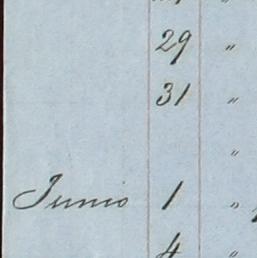 29 "
31 "
"
Junio 1 "
4 "